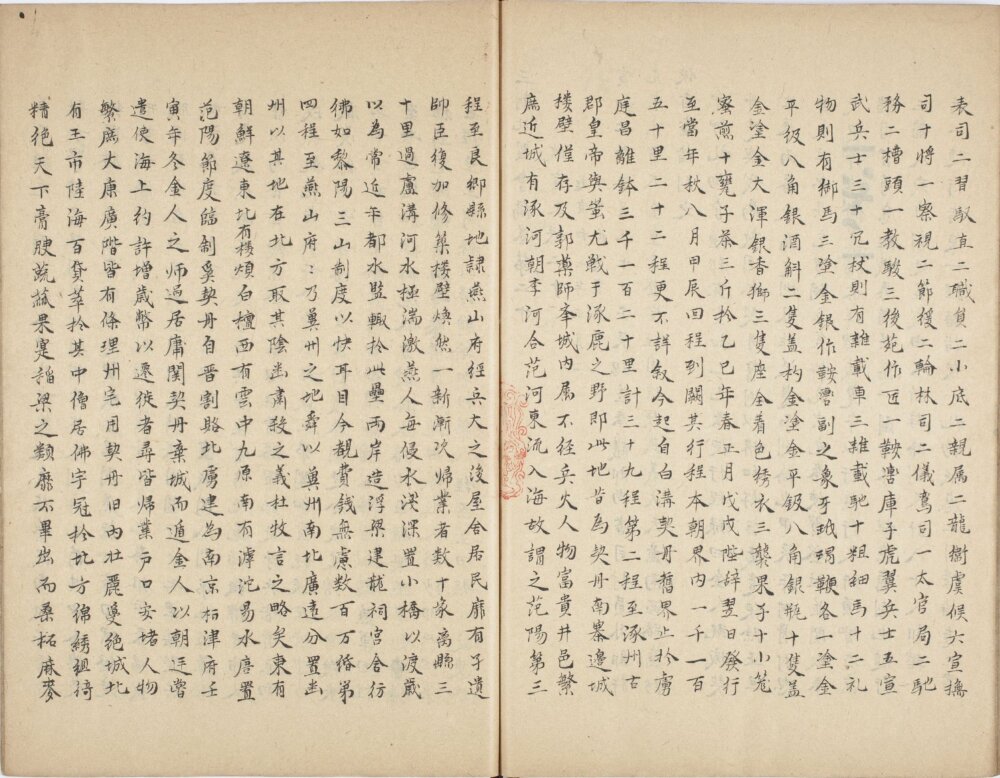 表司二習馭直二職負二小底二親属二龍衛虞候六宣撫
司十将一察視二節援二翰林司二儀鸞司一太官局二馳
務二槽頭一教駿三後苑作匠一鞍轡庫子虎翼兵士五宣
武兵士三十冗杖則有雜載車三雜載駞十粗細馬十二礼
物則有御馬三塗金銀作鞍轡副之象牙玳瑁鞭各一塗金
平鈒八角銀酒斛二隻盖杓金塗金平鈒八角銀瓶十隻盖
金塗金大渾銀香獅三隻座全着色綉衣三襲果子十小笼
蜜煎十甕子茶三斤扵乙巳年春正月戊戌陛辞翌日發行
至當年秋八月甲辰囬程到闕其行程本朝界内一千一百
五十里二十二程更不詳叙今起自白溝契丹舊界止扵虜
庭昌離鉢三千一百二十里計三十九程第二程至涿州古
郡皇帝與蚩尤戰于涿鹿之野即此地昔為契丹南寨邊城
楼壁僅存及郭藥師率城内属不経兵火人物富貴井邑繁
庶近城有涿河朝李河合范河東流入海故謂之范陽第三
程至良郷縣地隷燕山府經兵大之後屋舎居民靡有孑遺
帥臣復加修築楼壁煥然一新漸次歸業者数十家离縣三
十里過盧溝河水極湍激燕人每侵水淺深置小橋以渡歳
以為常近年都水監輒扵此壘兩岸造浮梁建龍祠宮舎彷
彿如黎陽三山制度以快耳目今觀費銭無慮数百万緡第
四程至燕山府：乃兾州之地舜以兾州南北廣逺分置幽
州以其地在北方取其陰幽肅殺之義杜牧言之略矣東有
朝鮮遼東北有楼煩白檀西有雲中九原南有滹沱易水唐置
范陽節度臨制奚契丹自晋割賂北虜建為南京柝津府壬
寅年冬金人之师過居庸関契丹棄城而遁金人以朝㢓嘗
遣使海上約許增歳幣以遷徙者尋皆歸業户口安堵人物
繁庶大康廣階皆有條理州宅用契丹旧内壮麗敻絶城北
有王市陸海百貨萃扵其中僧居佛宇冠扵北方綿綉組綺
精絶天下膏腴蔬蓏果寔稲梁之類靡不畢出而桑柘麻麥